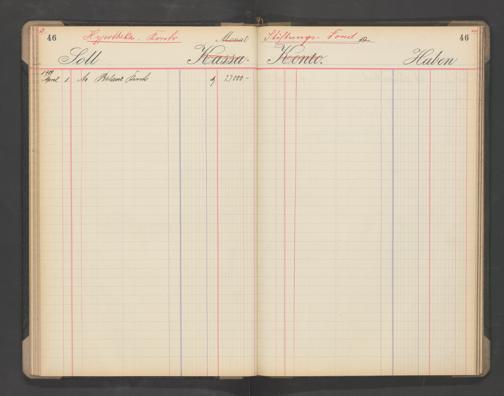 46 Hypothek. Konto
Stiftungs. Fond
46
Soll Kassa. Konto. Haben
April 1 An Balanz Konto 23000 -